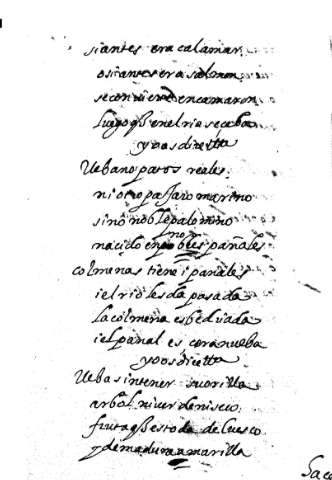 si antes era calamar
o si antes era salmon
se convierte en camaron
luego q̃ en el rio se caba
y vos direita
lleba no patos reales
ni otro pajaro marino
sino noble palomino
nacido en nobles pañales
colmenas tiene i panales
i el rio les da posada
la colmena es
i el panal es cera nueba
y vos direita
lleba sin tener su orilla
arbol ni verde ni seco
fruta q̃ es toda de cuesco
y de madura amarilla
Saca